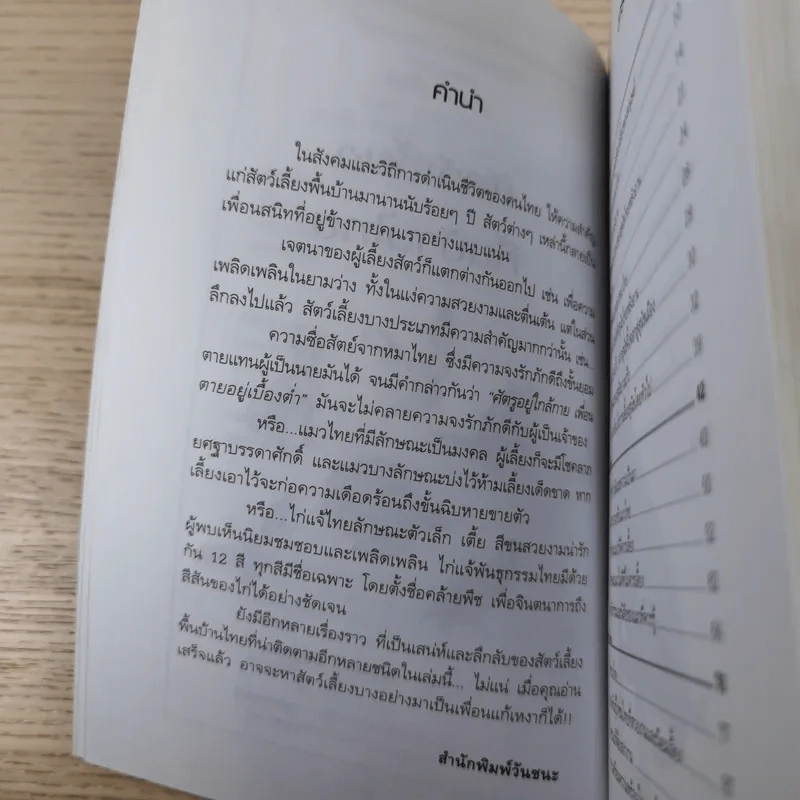 คำนำ
ในสังคมและวิถีการดำเนินชีวิตของคนไทย ให้ความสำคัญ
แก่สัตว์เลี้ยงพื้นบ้านมานานนับร้อยๆ ปี สัตว์ต่างๆ เหล่านี้กลายเป็น
เพื่อนสนิทที่อยู่ข้างกายคนเราอย่างแนบแน่น
เจตนาของผู้เลี้ยงสัตว์ก็แตกต่างกันออกไป เช่น เพื่อความ
เพลิดเพลินในยามว่าง ทั้งในแง่ความสวยงามและตื่นเต้น แต่ในส่วน
ลึกลงไปแล้ว สัตว์เลี้ยงบางประเภทมีความสำคัญมากกว่านั้น เช่น...
ความซื่อสัตย์จากหมาไทย ซึ่งมีความจงรักภักดีถึงขั้นยอม
ตายแทนผู้เป็นนายมันได้ จนมีคำกล่าวกันว่า "ศัตรูอยู่ใกล้กาย เพื่อน
ตายอยู่เบื้องต่ำ" มันจะไม่คลายความจงรักภักดีกับผู้เป็นเจ้าของ
หรือ...แมวไทยที่มีลักษณะเป็นมงคล ผู้เลี้ยงก็จะมีโชคลาภ
ยศฐาบรรดาศักดิ์ และแมวบางลักษณะบ่งไว้ห้ามเลี้ยงเด็ดขาด หาก
เลี้ยงเอาไว้จะก่อความเดือดร้อนถึงขั้นฉิบหายขายตัว
หรือ...ไก่แจ้ไทยลักษณะตัวเล็ก เตี้ย สีขนสวยงามน่ารัก
ผู้พบเห็นนิยมชมชอบและเพลิดเพลิน ไก่แจ้พันธุกรรมไทยมีด้วย
กัน 12 สี ทุกสีมีชื่อเฉพาะ โดยตั้งชื่อคล้ายพืช เพื่อจินตนาการถึง
สีสันของไก่ได้อย่างชัดเจน
ยังมีอีกหลายเรื่องราว ที่เป็นเสน่ห์และลึกลับของสัตว์เลี้ยง
พื้นบ้านไทยที่น่าติดตามอีกหลายชนิดในเล่มนี้... ไม่แน่ เมื่อคุณอ่าน
เสร็จแล้ว อาจจะหาสัตว์เลี้ยงบางอย่างมาเป็นเพื่อนแก้เหงาก็ได้!!
สำนักพิมพ์วันชนะ